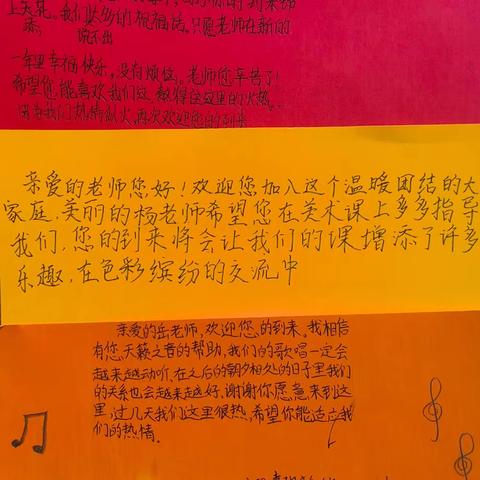 上天花。我们太多的祝福话,只愿老师在新的
说不出
一年里幸福快乐,没有烦恼。老师您辛苦了!
希望您能喜欢我们这
因为我们热情似火,再次欢迎您的到来
亲爱的老师您好!欢迎您加入这个温暖团结的大
家庭.美丽的杨老师希望您在美术课上多多指导
我们.您的到来将会让我们的课增添了许多
乐趣.在色彩缤纷的交流中
亲爱的岳老师,欢迎您的到来。我相信
有您天籁之音的帮助,我们的歌唱一定会
越来越动听。在之后的朝夕相处的日子里我们
的关系也会越来越好。谢谢你愿意来到这
里,过几天我们这里很热,希望你能适应我
们的热情。